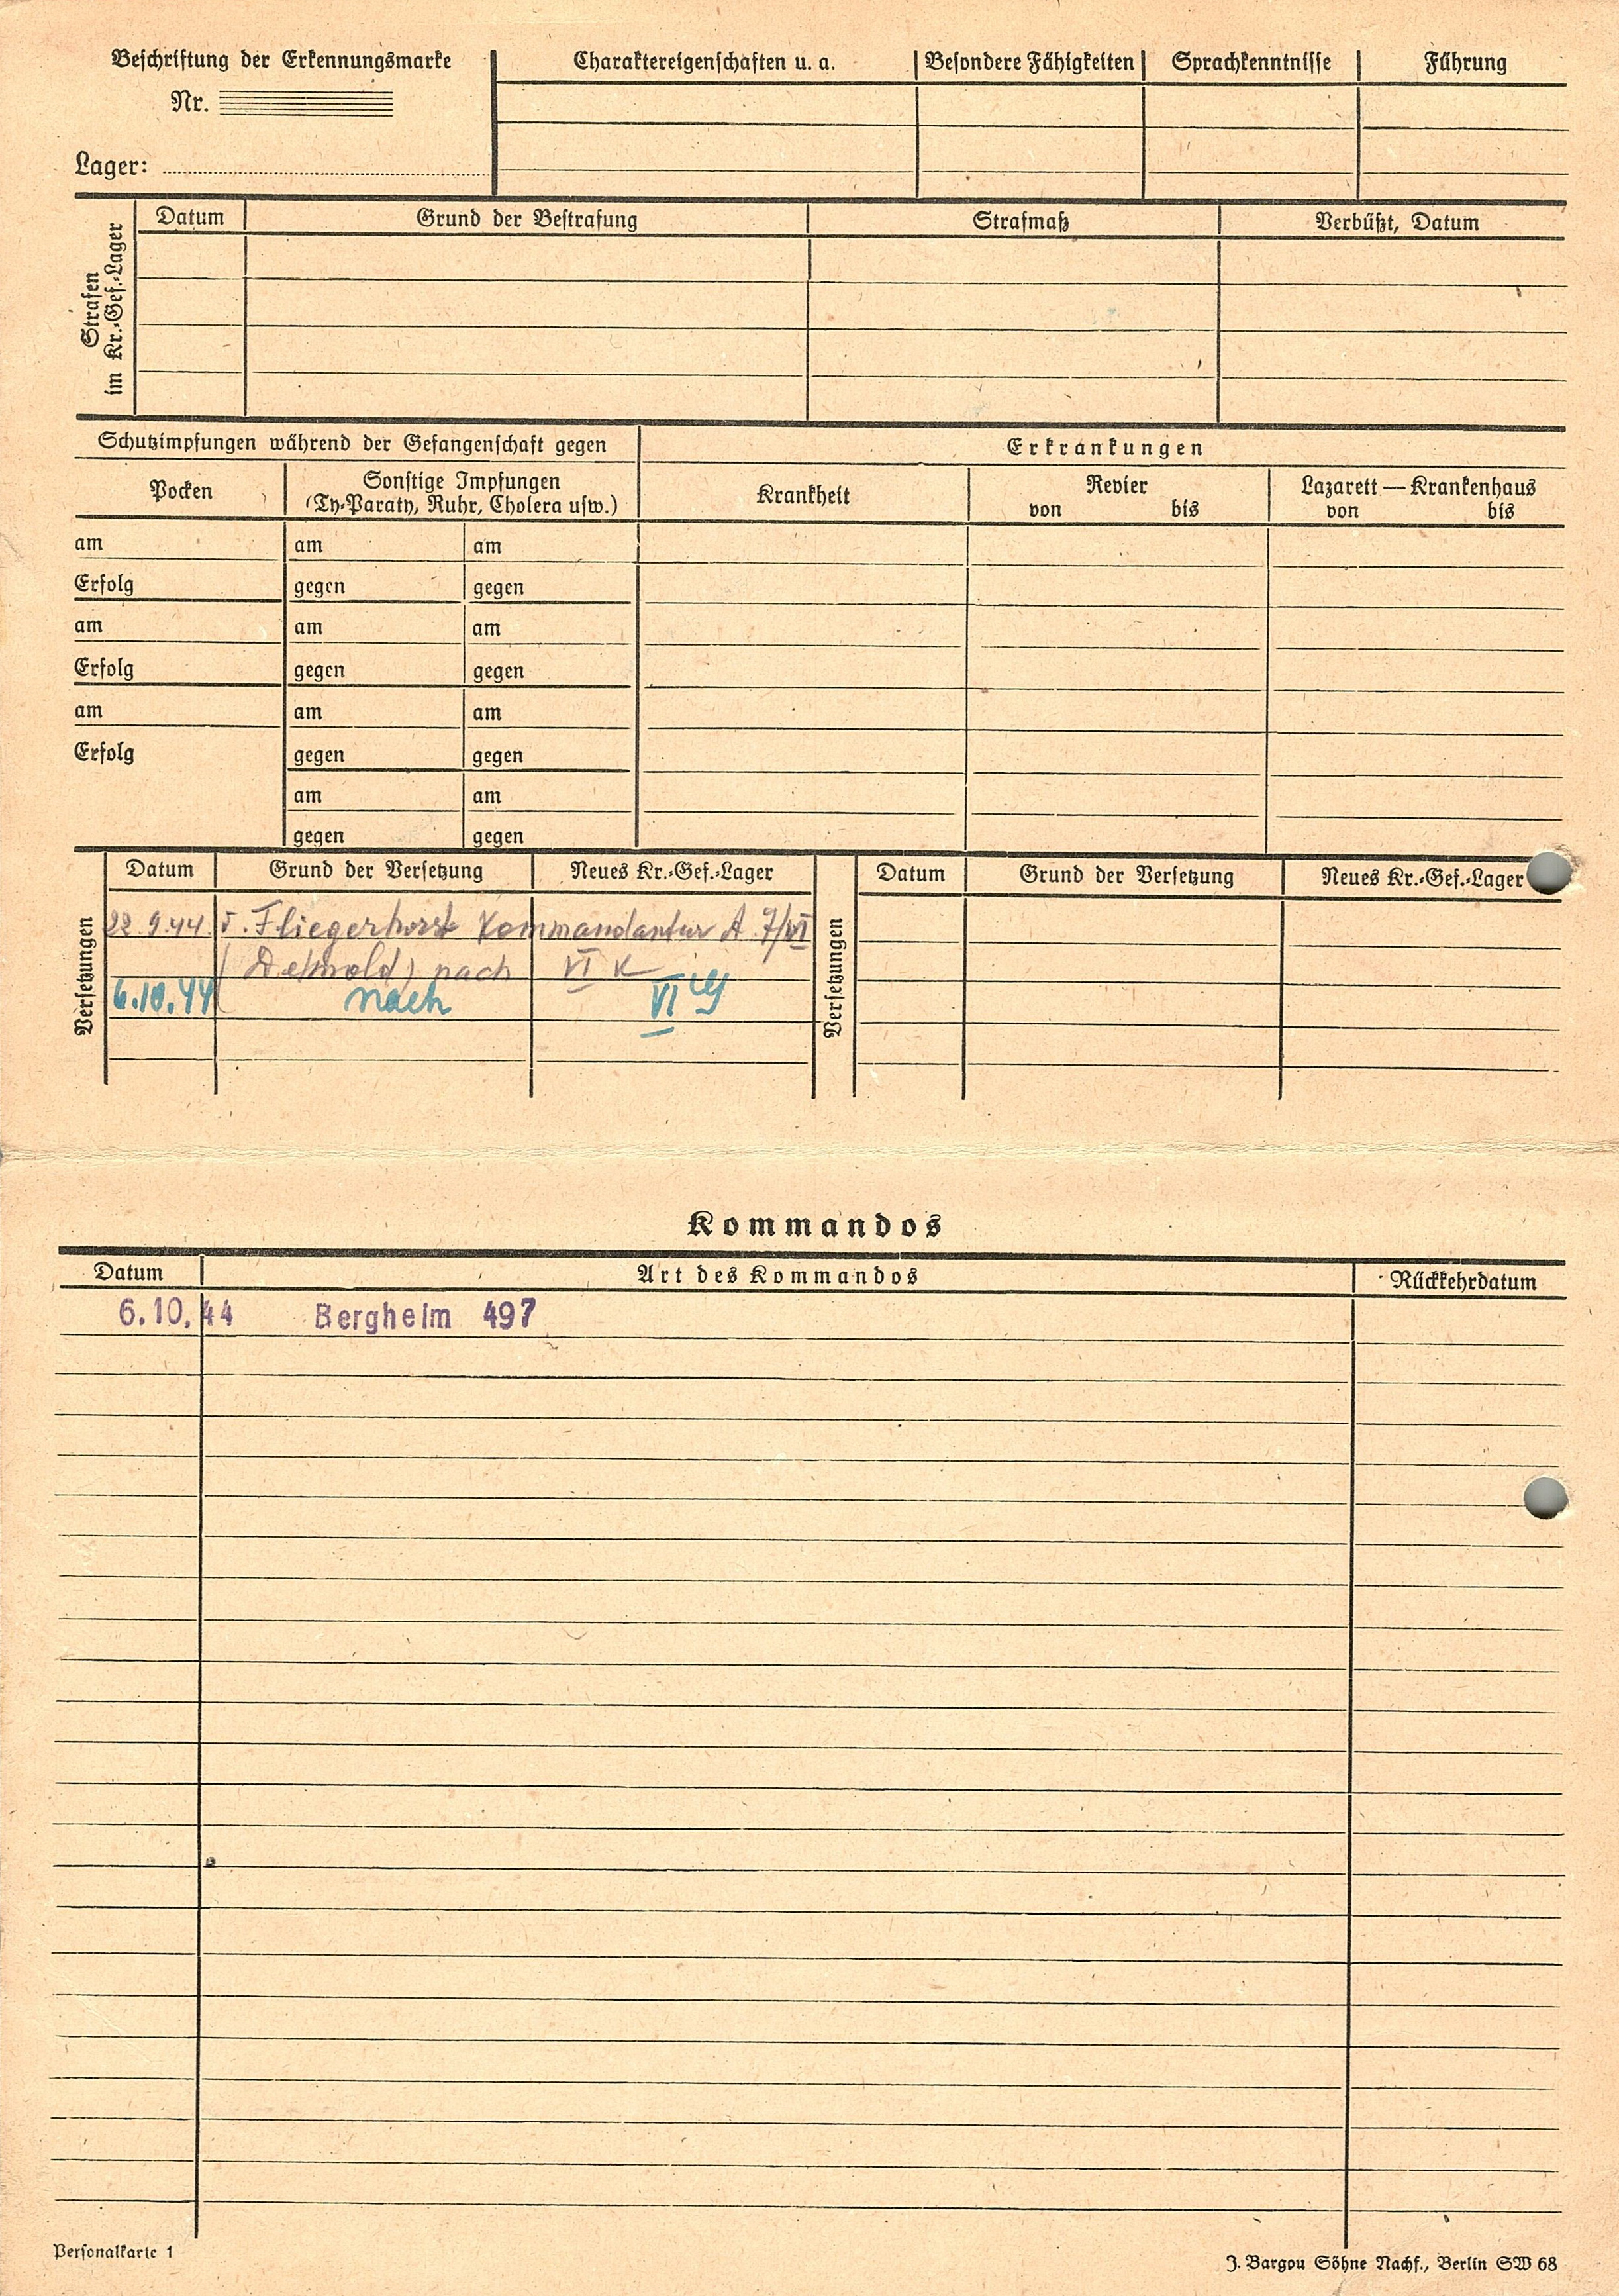 Beschriftung der Erkennungsmarke
Nr.
Lager:
Charaktereigenschaften u. a.
Besondere Fähigkeiten
Sprachkenntnisse
Führung
Strafen
im Kr.-Gef.-Lager
Datum
Grund der Bestrafung
Strafmaß
Verbüßt, Datum
Schutzimpfungen während der Gefangenschaft gegen
Erkrankungen
Pocken
Sonstige Impfungen
(Ty-Paraty, Ruhr, Cholera usw.)
Krankheit
Revier
von bis
Lazarett — Krankenhaus
von bis
am am am
Erfolg gegen gegen
am am am
Erfolg gegen gegen
am am am
Erfolg gegen gegen
am am
gegen gegen
Versetzungen
Datum Grund der Versetzung Neues Kr.-Gef.-Lager
22.9.44 v. Fliegerhorst Kommandantur A 7/VI
(Detmold) nach VI K
6.10.44 nach VI G
Versetzungen
Datum Grund der Versetzung Neues Kr.-Gef.-Lager
Kommandos
Datum Art des Kommandos Rückkehrdatum
6.10.44 Bergheim 497
Personalkarte 1
J. Bargou Söhne Nachf., Berlin SW 68